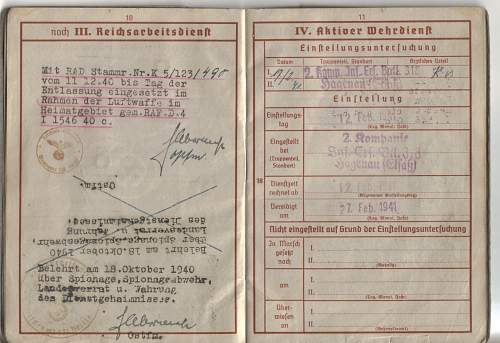 10
noch III. Reichsarbeitsdienst
Mit RAD Stammr.Nr.K 5/123/490
vom 11 12.40 bis Tag der
Entlassung eingesetzt im
Rahmen der Luftwaffe im
Heimatgebiet gem.RAP.D.4
I 1546 40 c.
Ostfm.
Belehrt am 18.Oktober 1940
über Spionage, Spionageabwehr,
Landesverrat u Wahrung
des Dienstgeheimnisses.
Belehrt am 18.Oktober 1940
über Spionage, Spionageabwehr,
Landesverrat u Wahrung
des Dienstgeheimnisses.
Ostfm.
11
IV. Aktiver Wehrdienst
Einstellungsuntersuchung
Datum
Truppenteil, Standort
I.
2. Komp. Inf. Ers. Batl.
II.
Hagenau
Einstellung
Einstellungs-
tag
12. Feb. 1941
(Tag, Monat, Jahr)
Eingestellt
bei
(Truppenteil,
Standort)
2. Kompanie
Inf. Ers. Btl.
Hagenau (Elsaß)
18
Dienstzeit
rechnet ab
12.
(Tag, Monat, Jahr)
Vereidigt
am
27. Feb. 1941
(Tag, Monat, Jahr)
Nicht eingestellt auf Grund der Einstellungsuntersuchung
In Marsch
gesetzt
nach
I.
II.
am
I.
II.
(Tag, Monat, Jahr)
Über-
wiesen
an
I.
II.